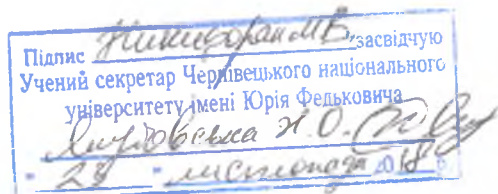 Підпис Никифорак М.В. засвідчую
Учений секретар Чернівецького національного
університету імені Юрія Федьковича
Н.О.
" 28 " листопада 2018